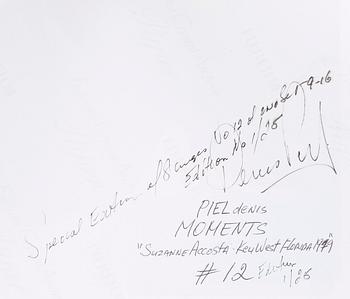 Special Edition of 8 images No 12 of 2nd Set 9-16
Edition No 1/25
PIEL denis
MOMENTS
"SUZANNE ACCOSTA - KEY WEST FLORIDA 1979"
#12 Edition
1/25